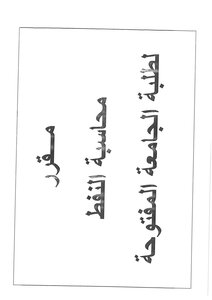 مقرر
محاسبة النفط
لطلبة الجامعة المفتوحة